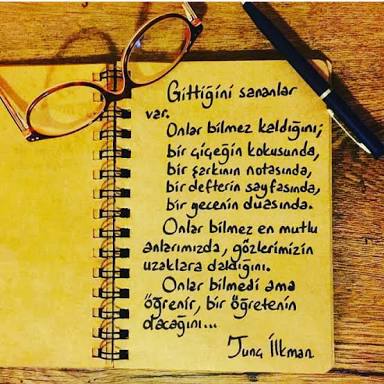 Gittiğini sananlar
var.
Onlar bilmez kaldığını;
bir çiçeğin kokusunda,
bir şarkının notasında,
bir defterin sayfasında,
bir gecenin duasında.
Onlar bilmez en mutlu
anlarımızda, gözlerimizin
uzaklara daldığını.
Onlar bilmedi ama
öğrenir, bir öğretenin
olacağını...
Tuna İlkman